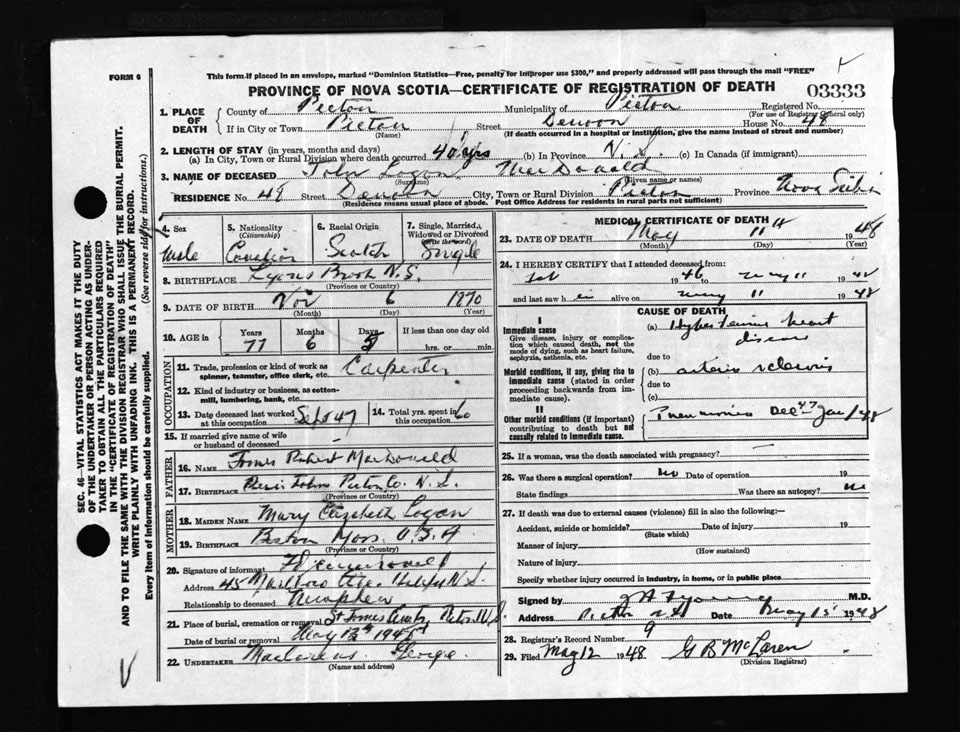 FORM 6
This form if placed in an envelope, marked "Dominion Statistics—Free, penalty for improper use $300," and properly addressed will pass through the mail "FREE"
PROVINCE OF NOVA SCOTIA—CERTIFICATE OF REGISTRATION OF DEATH
03333
1. PLACE OF DEATH
County of Pictou Municipality of Pictou Registered No.
(For use of Registrar General only)
If in City or Town Pictou Street Denoon House No. 48
(Name) (If death occurred in a hospital or institution, give the name instead of street and number)
2. LENGTH OF STAY (in years, months and days)
(a) In City, Town or Rural Division where death occurred 40 yrs (b) In Province N.S. (c) In Canada (if immigrant)
3. NAME OF DECEASED John Logan MacDonald
(Surname) (Given name or names)
RESIDENCE No. 48 Street Denoon City, Town or Rural Division Pictou Province Nova Scotia
(Residence means usual place of abode. Post Office Address for residents in rural parts not sufficient)
4. Sex
Male
5. Nationality
(Citizenship)
Canadian
6. Racial Origin
Scotch
7. Single, Married, Widowed or Divorced
(write the word)
Single
8. BIRTHPLACE Lyons Brook N.S.
(Province or Country)
9. DATE OF BIRTH Nov 6 1870
(Month) (Day) (Year)
10. AGE in
Years Months Days If less than one day old
77 6 5 hrs. or min.
OCCUPATION
11. Trade, profession or kind of work as spinner, teamster, office clerk, etc. Carpenter
12. Kind of industry or business, as cotton-mill, lumbering, bank, etc.
13. Date deceased last worked at this occupation Sept 47
14. Total yrs. spent in this occupation 60
15. If married give name of wife or husband of deceased
FATHER
16. NAME James Robert MacDonald
17. BIRTHPLACE John Pictou Co. N.S.
(Province or Country)
MOTHER
18. MAIDEN NAME Mary Elizabeth Logan
19. BIRTHPLACE Boston Mass. U.S.A
(Province or Country)
20. Signature of informant
Address 45 Marlboro Ave. Halifax N.S.
Relationship to deceased Nephew
21. Place of burial, cremation or removal St James Pictou N.S.
Date of burial or removal May 13th 1948
22. UNDERTAKER George
(Name and address)
MEDICAL CERTIFICATE OF DEATH
23. DATE OF DEATH May 11th 1948
(Month) (Day) (Year)
24. I HEREBY CERTIFY that I attended deceased from
1946 to May 11 1948
and last saw h im alive on May 11 1948
CAUSE OF DEATH
I
Immediate cause
Give disease, injury or complication which caused death, not the mode of dying, such as heart failure, asphyxia, asthenia, etc.
(a) Hypertensive heart disease
due to
Morbid conditions, if any, giving rise to immediate cause (stated in order proceeding backwards from immediate cause).
(b) arterio sclerosis
due to
(c)
II
Other morbid conditions (if important) contributing to death but not causally related to immediate cause.
Pneumonia Dec 47 Jan/48
25. If a woman, was the death associated with pregnancy?
26. Was there a surgical operation? no Date of operation 19
State findings Was there an autopsy? no
27. If death was due to external causes (violence) fill in also the following:—
Accident, suicide or homicide? Date of injury 19
(State which)
Manner of injury
(How sustained)
Nature of injury
Specify whether injury occurred in industry, in home, or in public place
Signed by M.D.
Address Pictou N.S. Date May 1948
28. Registrar's Record Number 9
29. Filed May 12 1948 G B McLaren
(Division Registrar)
SEC. 46—VITAL STATISTICS ACT MAKES IT THE DUTY
OF THE UNDERTAKER OR PERSON ACTING AS UNDER-
TAKER TO OBTAIN ALL THE PARTICULARS REQUIRED
IN THE "CERTIFICATE OF REGISTRATION OF DEATH"
AND TO FILE THE SAME WITH THE DIVISION REGISTRAR WHO SHALL ISSUE THE BURIAL PERMIT.
WRITE PLAINLY WITH UNFADING INK. THIS IS A PERMANENT RECORD.
Every item of information should be carefully supplied. (See reverse side for instructions.)